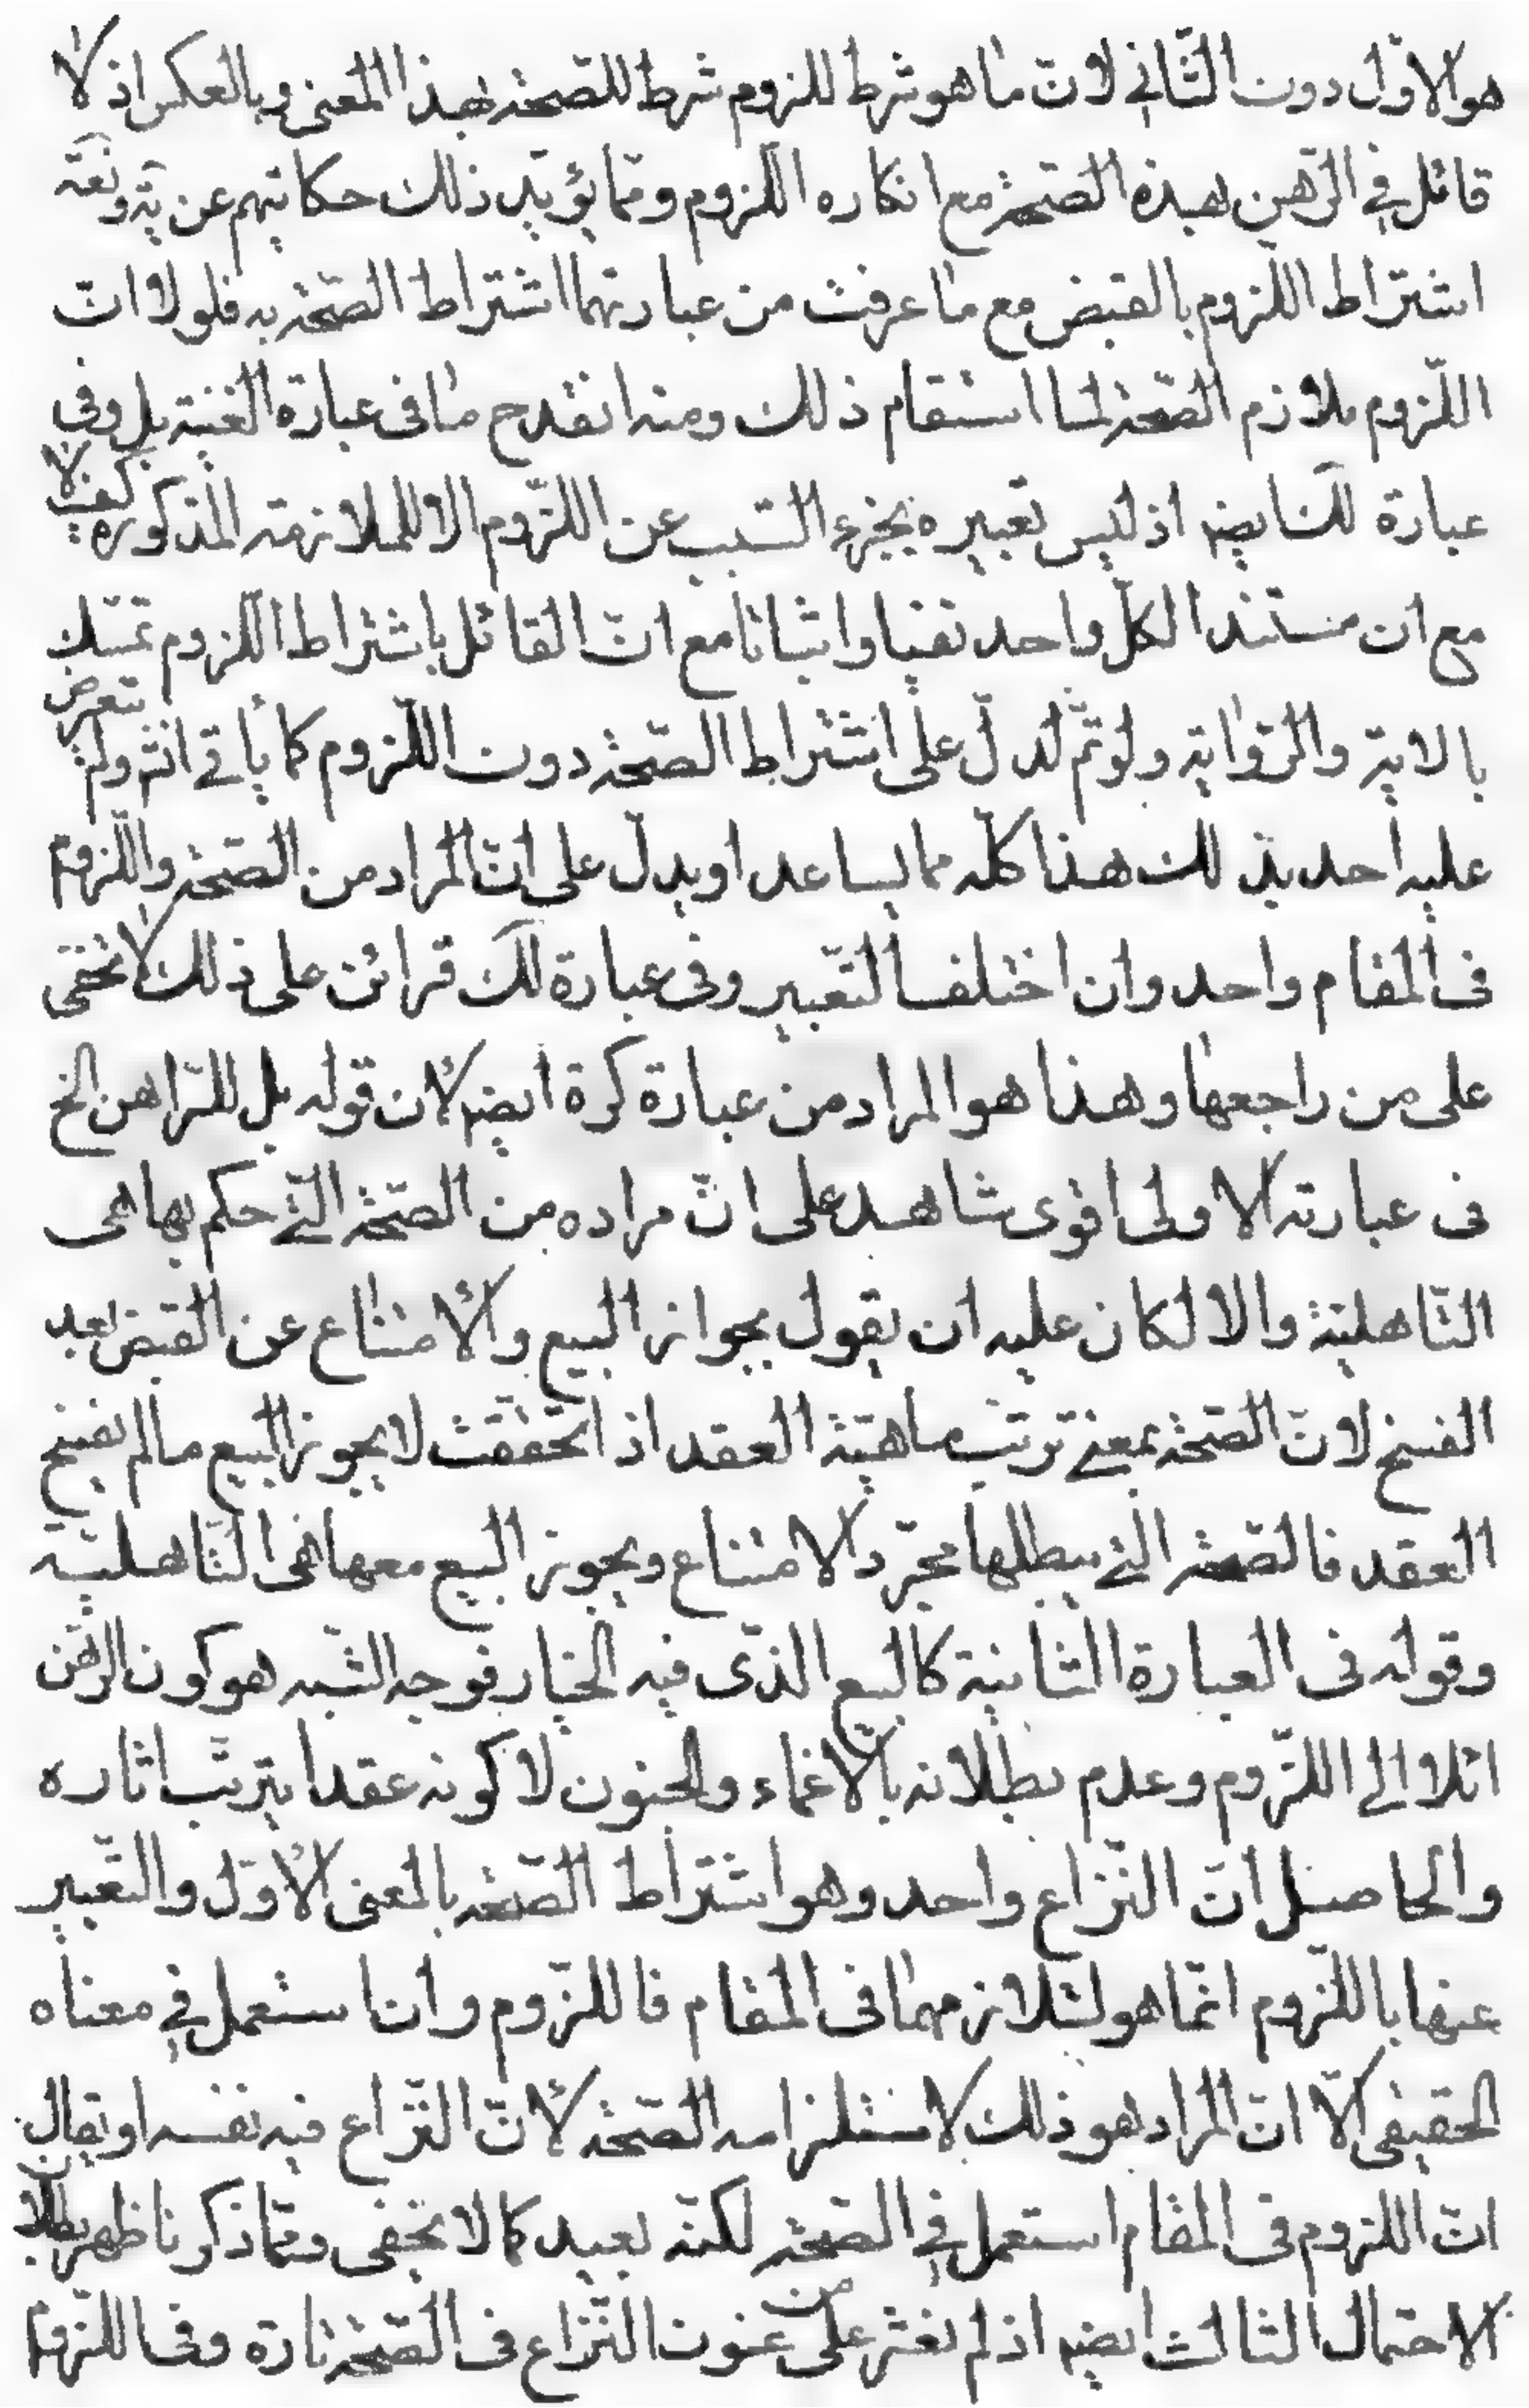 هو الاوّل دون الثّاني لانّ ما هو شرط للزوم شرط للصّحة بهذا المعنى وبالعكس اذ لا
قائل في الرّهن بهذه الصّحة مع انكاره اللّزوم وممّا يؤيّد ذلك حكايتهم عن ية ونعة
اشتراط اللّزوم بالقبض مع ما عرفت من عبارتهما اشتراط الصّحة به فلولا انّ
اللّزوم يلازم الصّحة لما استقام ذلك ومنه انقدح ما في عبارة الغنية بل وفي
عبارة لك ايضه اذ ليس تعبيره بجزء السّبب عن اللّزوم الا للملازمة المذكورة كيف لا
مع ان مستند الكلّ واحد نفيا واثباتا مع انّ القائل باشتراط اللّزوم تمسّك
بالاية والرّواية ولو تمّ لدلّ على اشتراط الصّحة دون اللّزوم كما يأتي انشم ولم يتعرض
عليه احد بذلك هذا كلّه مما يساعد او يدلّ على انّ المراد من الصّحة واللّزوم
في المقام واحد وان اختلف التّعبير وفي عبارة لك قرائن على ذلك لا تخفى
على من راجعها وهذا هو المراد من عبارة كرة ايضه لان قوله بل للرّاهن الخ
في عبارته الاولى اقوى شاهد على انّ مراده من الصّحة الّتي حكم بها هى
التّاهليّة والا لكان عليه ان يقول بجواز البيع والامتناع عن القبض بعد
الفسخ لانّ الصّحة بمعنى ترتّب ماهيّة العقد اذا تحقّقت لا يجوز البيع ما لم يفسخ
العقد فالصّحة الّتي يبطلها مجرّد الامتناع ويجوز البيع معها هى التّاهليّة
وقوله في العبارة الثّانية كالبيع الذّى فيه الخيار فوجه الشّبه هو كون الرّهن
ائلا الى اللّزوم وعدم بطلانه بالاغماء والجنون لا كونه عقدا يترتّب اثاره
والحاصل انّ النّزاع واحد وهو اشتراط الصّحة بالمعنى الاوّل والتّعبير
عنها باللّزوم انّما هو لتلازمهما في المقام فاللّزوم وان استعمل في معناه
الحقيقى الّا انّ المراد هو ذلك لاستلزامه الصّحة لانّ النّزاع فيه نفسه او يقال
انّ اللزوم في المقام استعمل في الصّحة لكنّه بعيد كما لا يخفى وممّا ذكرنا ظهر بطلان
الاحتمال الثالث ايضه اذ لم نعثر على من عنون النّزاع في الصّحة تارة وفي اللّزوم